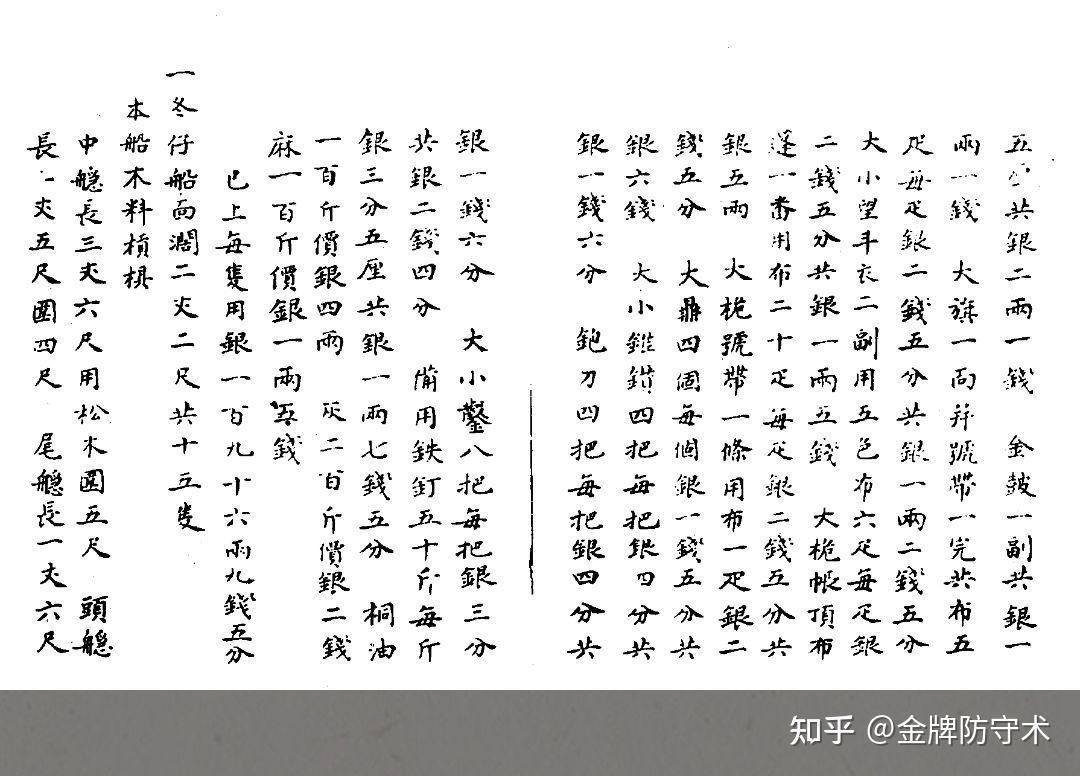 五分共銀二兩一錢 金鼓一副共銀一
兩一錢 大旗一面并號帶一完共布五
疋每疋銀二錢五分共銀一兩二錢五分
大小望斗衣二副用五色布六疋每疋銀
二錢五分共銀一兩五錢 大桅帳頂布
蓬一番用布二十疋每疋銀二錢五分共
銀五兩 大桅號帶一條用布一疋銀二
錢五分 大鼎四個每個銀一錢五分共
銀六錢 大小錐鑚四把每把銀四分共
銀一錢六分 鉋刀四把每把銀四分共
銀一錢六分 大小鑿八把每把銀三分
共銀二錢四分 俻用鉄釘五十斤每斤
銀三分五厘共銀一兩七錢五分 桐油
一百斤價銀四兩 灰二百斤價銀二錢
麻一百斤價銀一兩五錢
已上每隻用銀一百九十六兩九錢五分
一冬仔船面濶二丈二尺共十五隻
本船木料槓棋
中䑺長三丈六尺用松木圍五尺 頭䑺
長一丈五尺圍四尺 尾䑺長一丈六尺
知乎 @金牌防守术